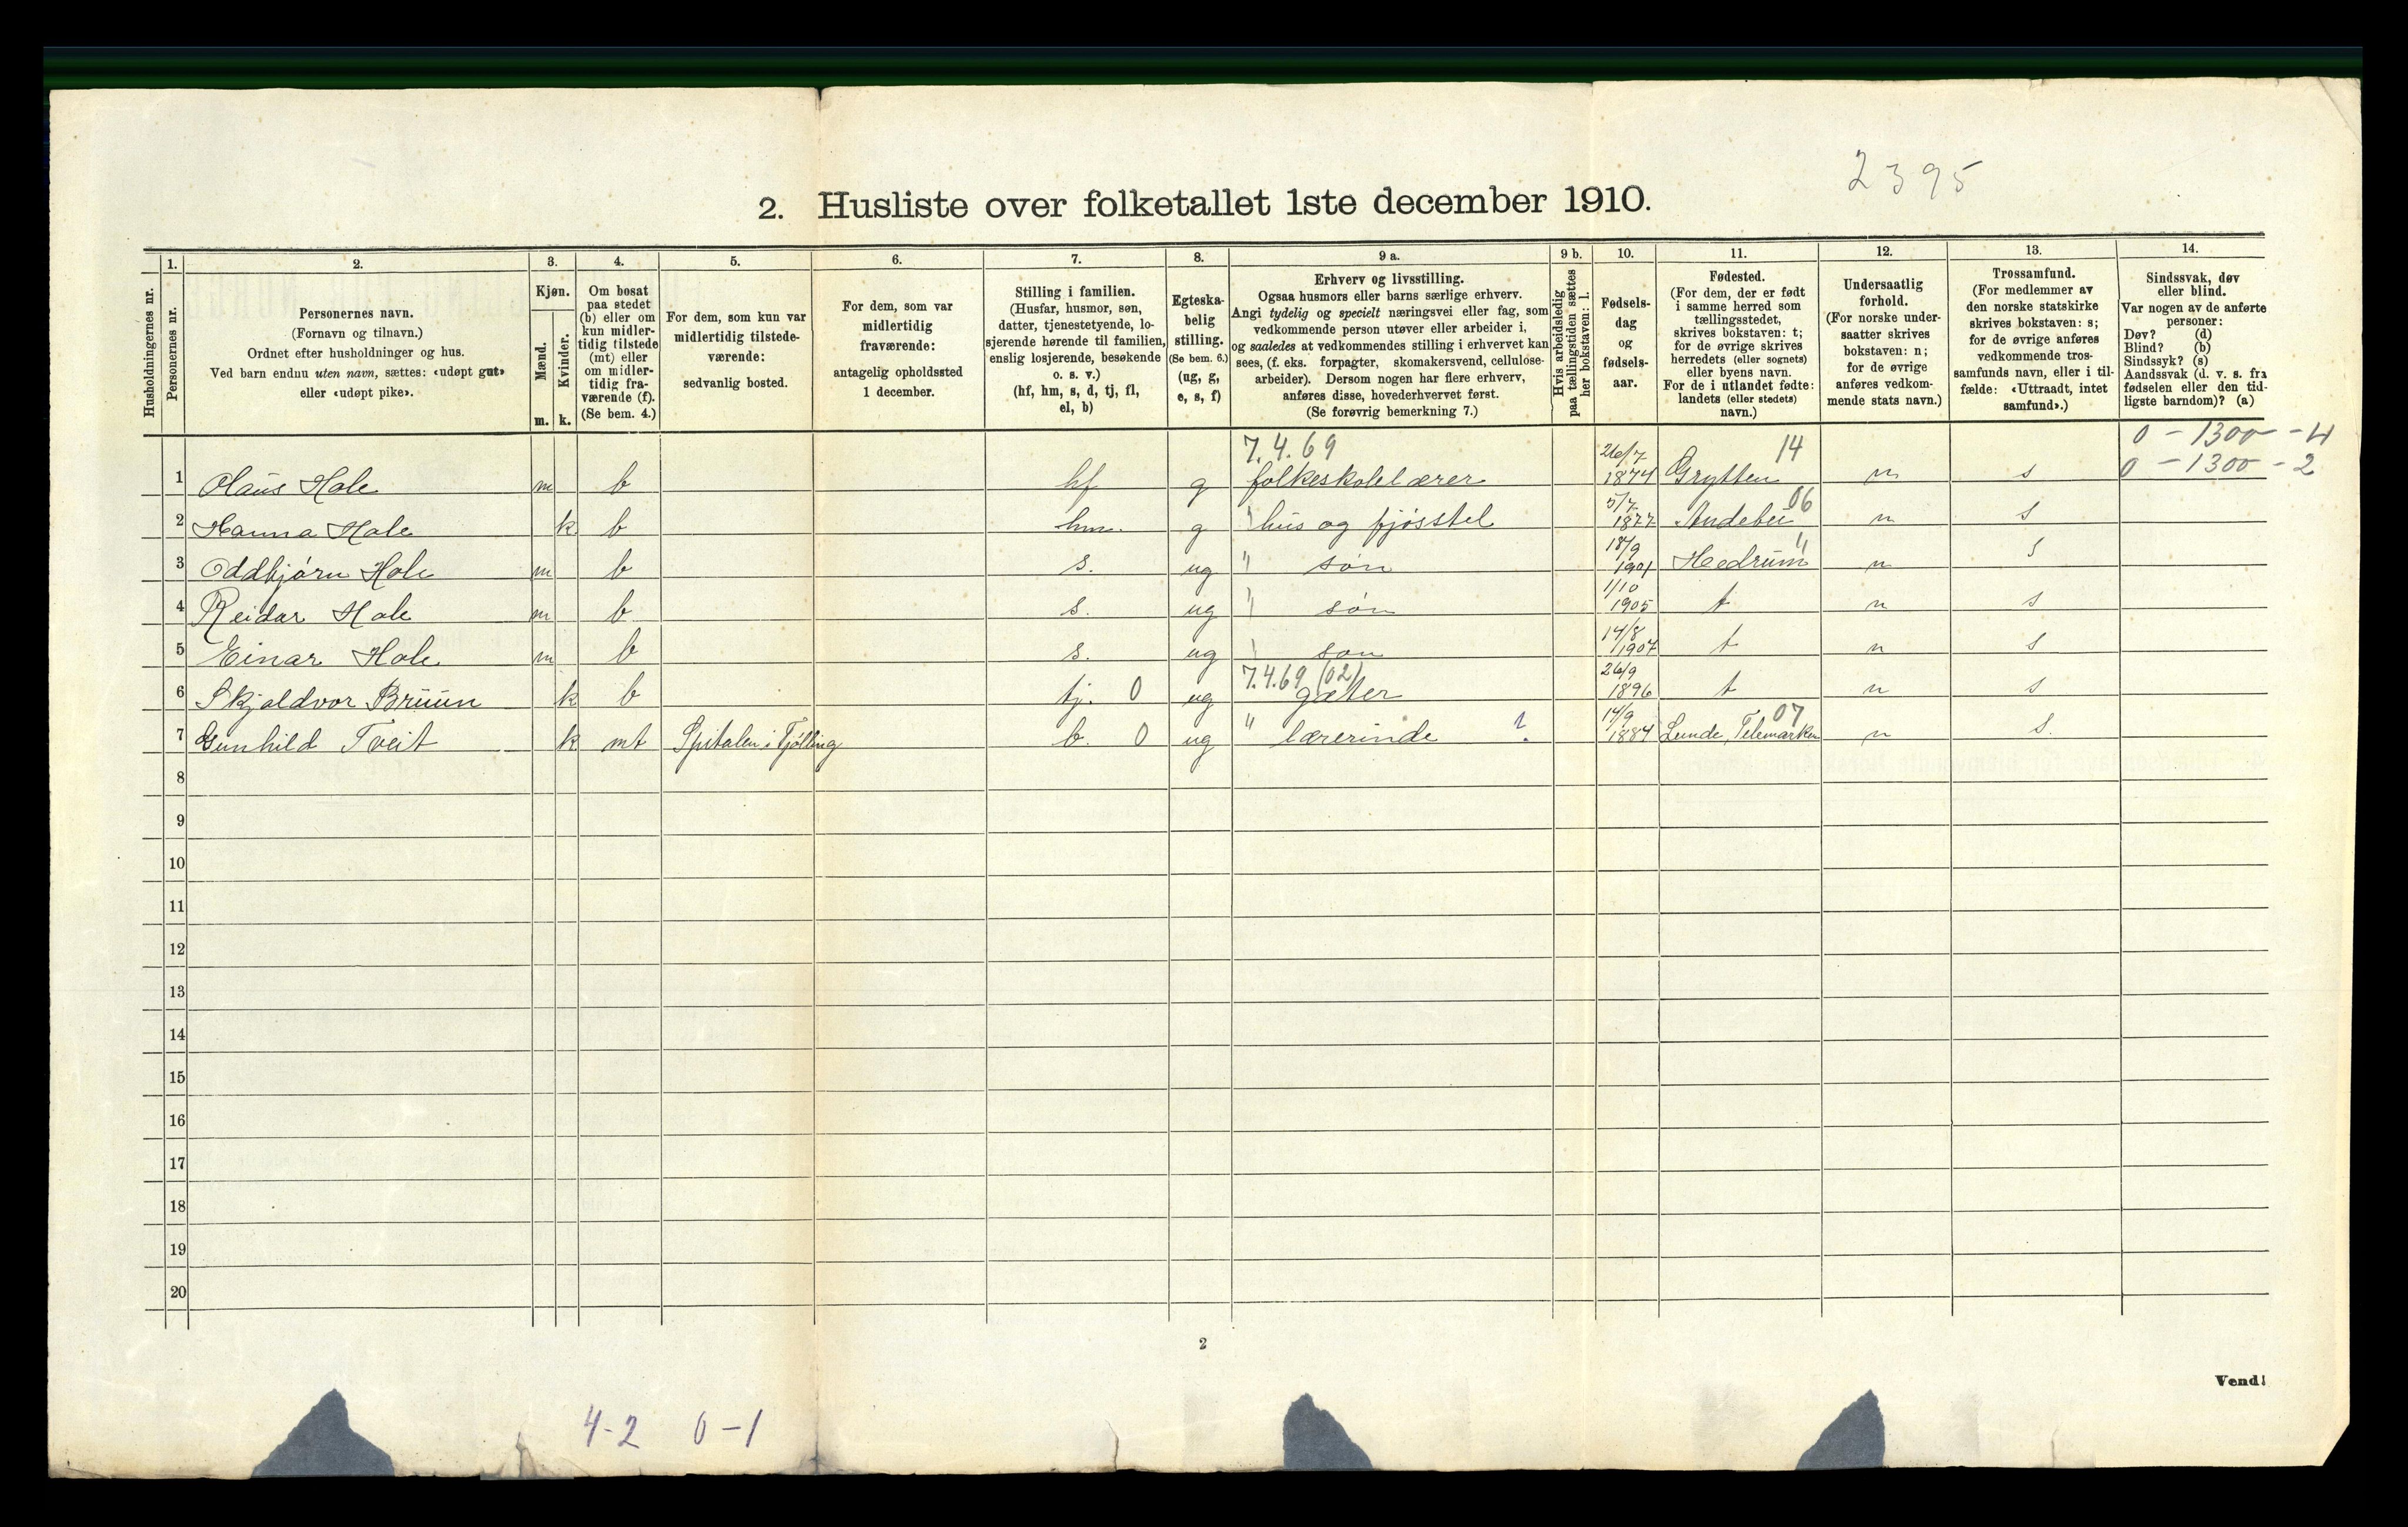 2395
2. Husliste over folketallet 1ste december 1910.
Husholdningernes nr.
1. Personernes nr.
2. Personernes navn. (Fornavn og tilnavn.) Ordnet efter husholdninger og hus. Ved barn endnu uten navn, sættes: «udøpt gut» eller «udøpt pike».
3. Kjøn. Mænd. m. Kvinder. k.
4. Om bosat paa stedet (b) eller om kun midlertidig tilstede (mt) eller om midlertidig fraværende (f). (Se bem. 4.)
5. For dem, som kun var midlertidig tilstedeværende: sedvanlig bosted.
6. For dem, som var midlertidig fraværende: antagelig opholdssted 1 december.
7. Stilling i familien. (Husfar, husmor, søn, datter, tjenestetyende, losjerende hørende til familien, enslig losjerende, besøkende o. s. v.) (hf, hm, s, d, tj, fl, el, b)
8. Egteskabelig stilling. (Se bem. 6.) (ug, g, e, s, f)
9 a. Erhverv og livsstilling. Ogsaa husmors eller barns særlige erhverv. Angi tydelig og specielt næringsvei eller fag, som vedkommende person utøver eller arbeider i, og saaledes at vedkommendes stilling i erhvervet kan sees, (f. eks. forpagter, skomakersvend, cellulosearbeider). Dersom nogen har flere erhverv, anføres disse, hovederhvervet først. (Se forøvrig bemerkning 7.)
9 b. Hvis arbeidsledig paa tællingstiden sættes her bokstaven: l.
10. Fødselsdag og fødselsaar.
11. Fødested. (For dem, der er født i samme herred som tællingsstedet, skrives bokstaven: t; for de øvrige skrives herredets (eller sognets) eller byens navn. For de i utlandet fødte: landets (eller stedets) navn.)
12. Undersaatlig forhold. (For norske undersaatter skrives bokstaven: n; for de øvrige anføres vedkommende stats navn.)
13. Trossamfund. (For medlemmer av den norske statskirke skrives bokstaven: s; for de øvrige anføres vedkommende trossamfunds navn, eller i tilfælde: «Uttraadt, intet samfund».)
14. Sindssvak, døv eller blind. Var nogen av de anførte personer: Døv? (d) Blind? (b) Sindssyk? (s) Aandssvak (d. v. s. fra fødselen eller den tidligste barndom)? (a)
7.4.69 14 0 - 1300 - 4
1 Olaus Hole m b hf g folkeskolelærer 26/7 1874 Grytten n s 0 - 1300 - 2
2 Hanna Hole k b hm. g " hus og fjøsstel 5/7 1877 Andebu 06 n s
3 Oddbjørn Hole m b s. ug " søn 18/9 1901 Hedrum " n s
4 Reidar Hole m b s. ug " søn 1/10 1905 t n s
5 Einar Hole m b s. ug " søn 14/8 1907 t n s
7.4.69 (02)
6 Skjoldvor Bruun k b tj. 0 ug gjæter 26/9 1896 t n s
7 Gunhild Tveit k mt Spitalen i Tjølling b. 0 ug " lærerinde ? 14/9 1884 Lunde, Telemarken 07 n s.
8
9
10
11
12
13
14
15
16
17
18
19
20
2
Vend!
4-2 0-1